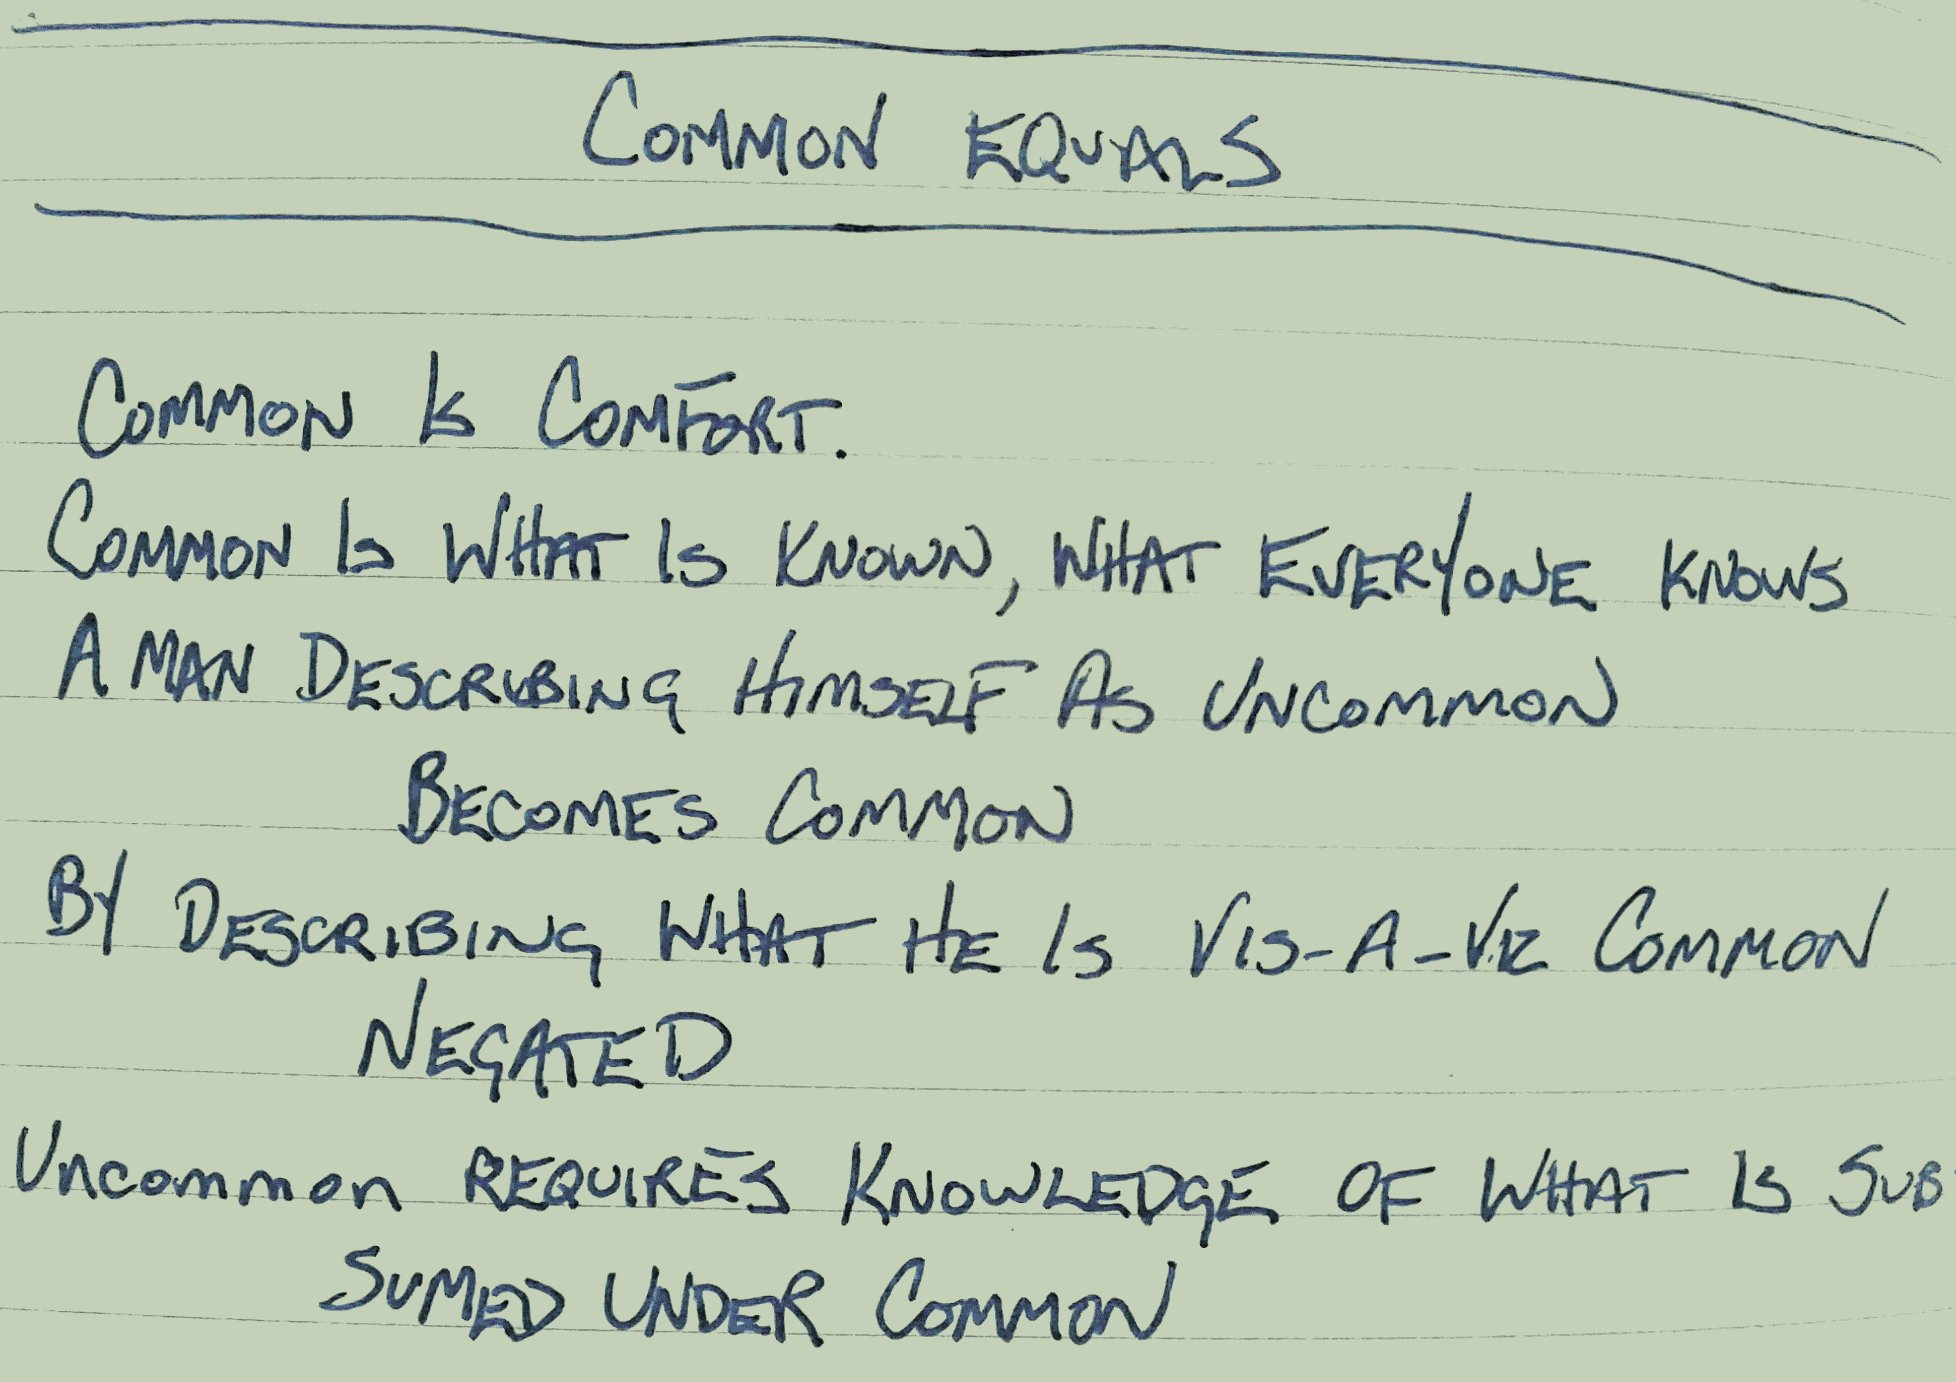 COMMON EQUALS
COMMON IS COMFORT.
COMMON IS WHAT IS KNOWN, WHAT EVERYONE KNOWS
A MAN DESCRIBING HIMSELF AS UNCOMMON
BECOMES COMMON
BY DESCRIBING WHAT HE IS VIS-A-VIS COMMON
NEGATED
Uncommon REQUIRES KNOWLEDGE OF WHAT IS SUB
SUMED UNDER COMMON